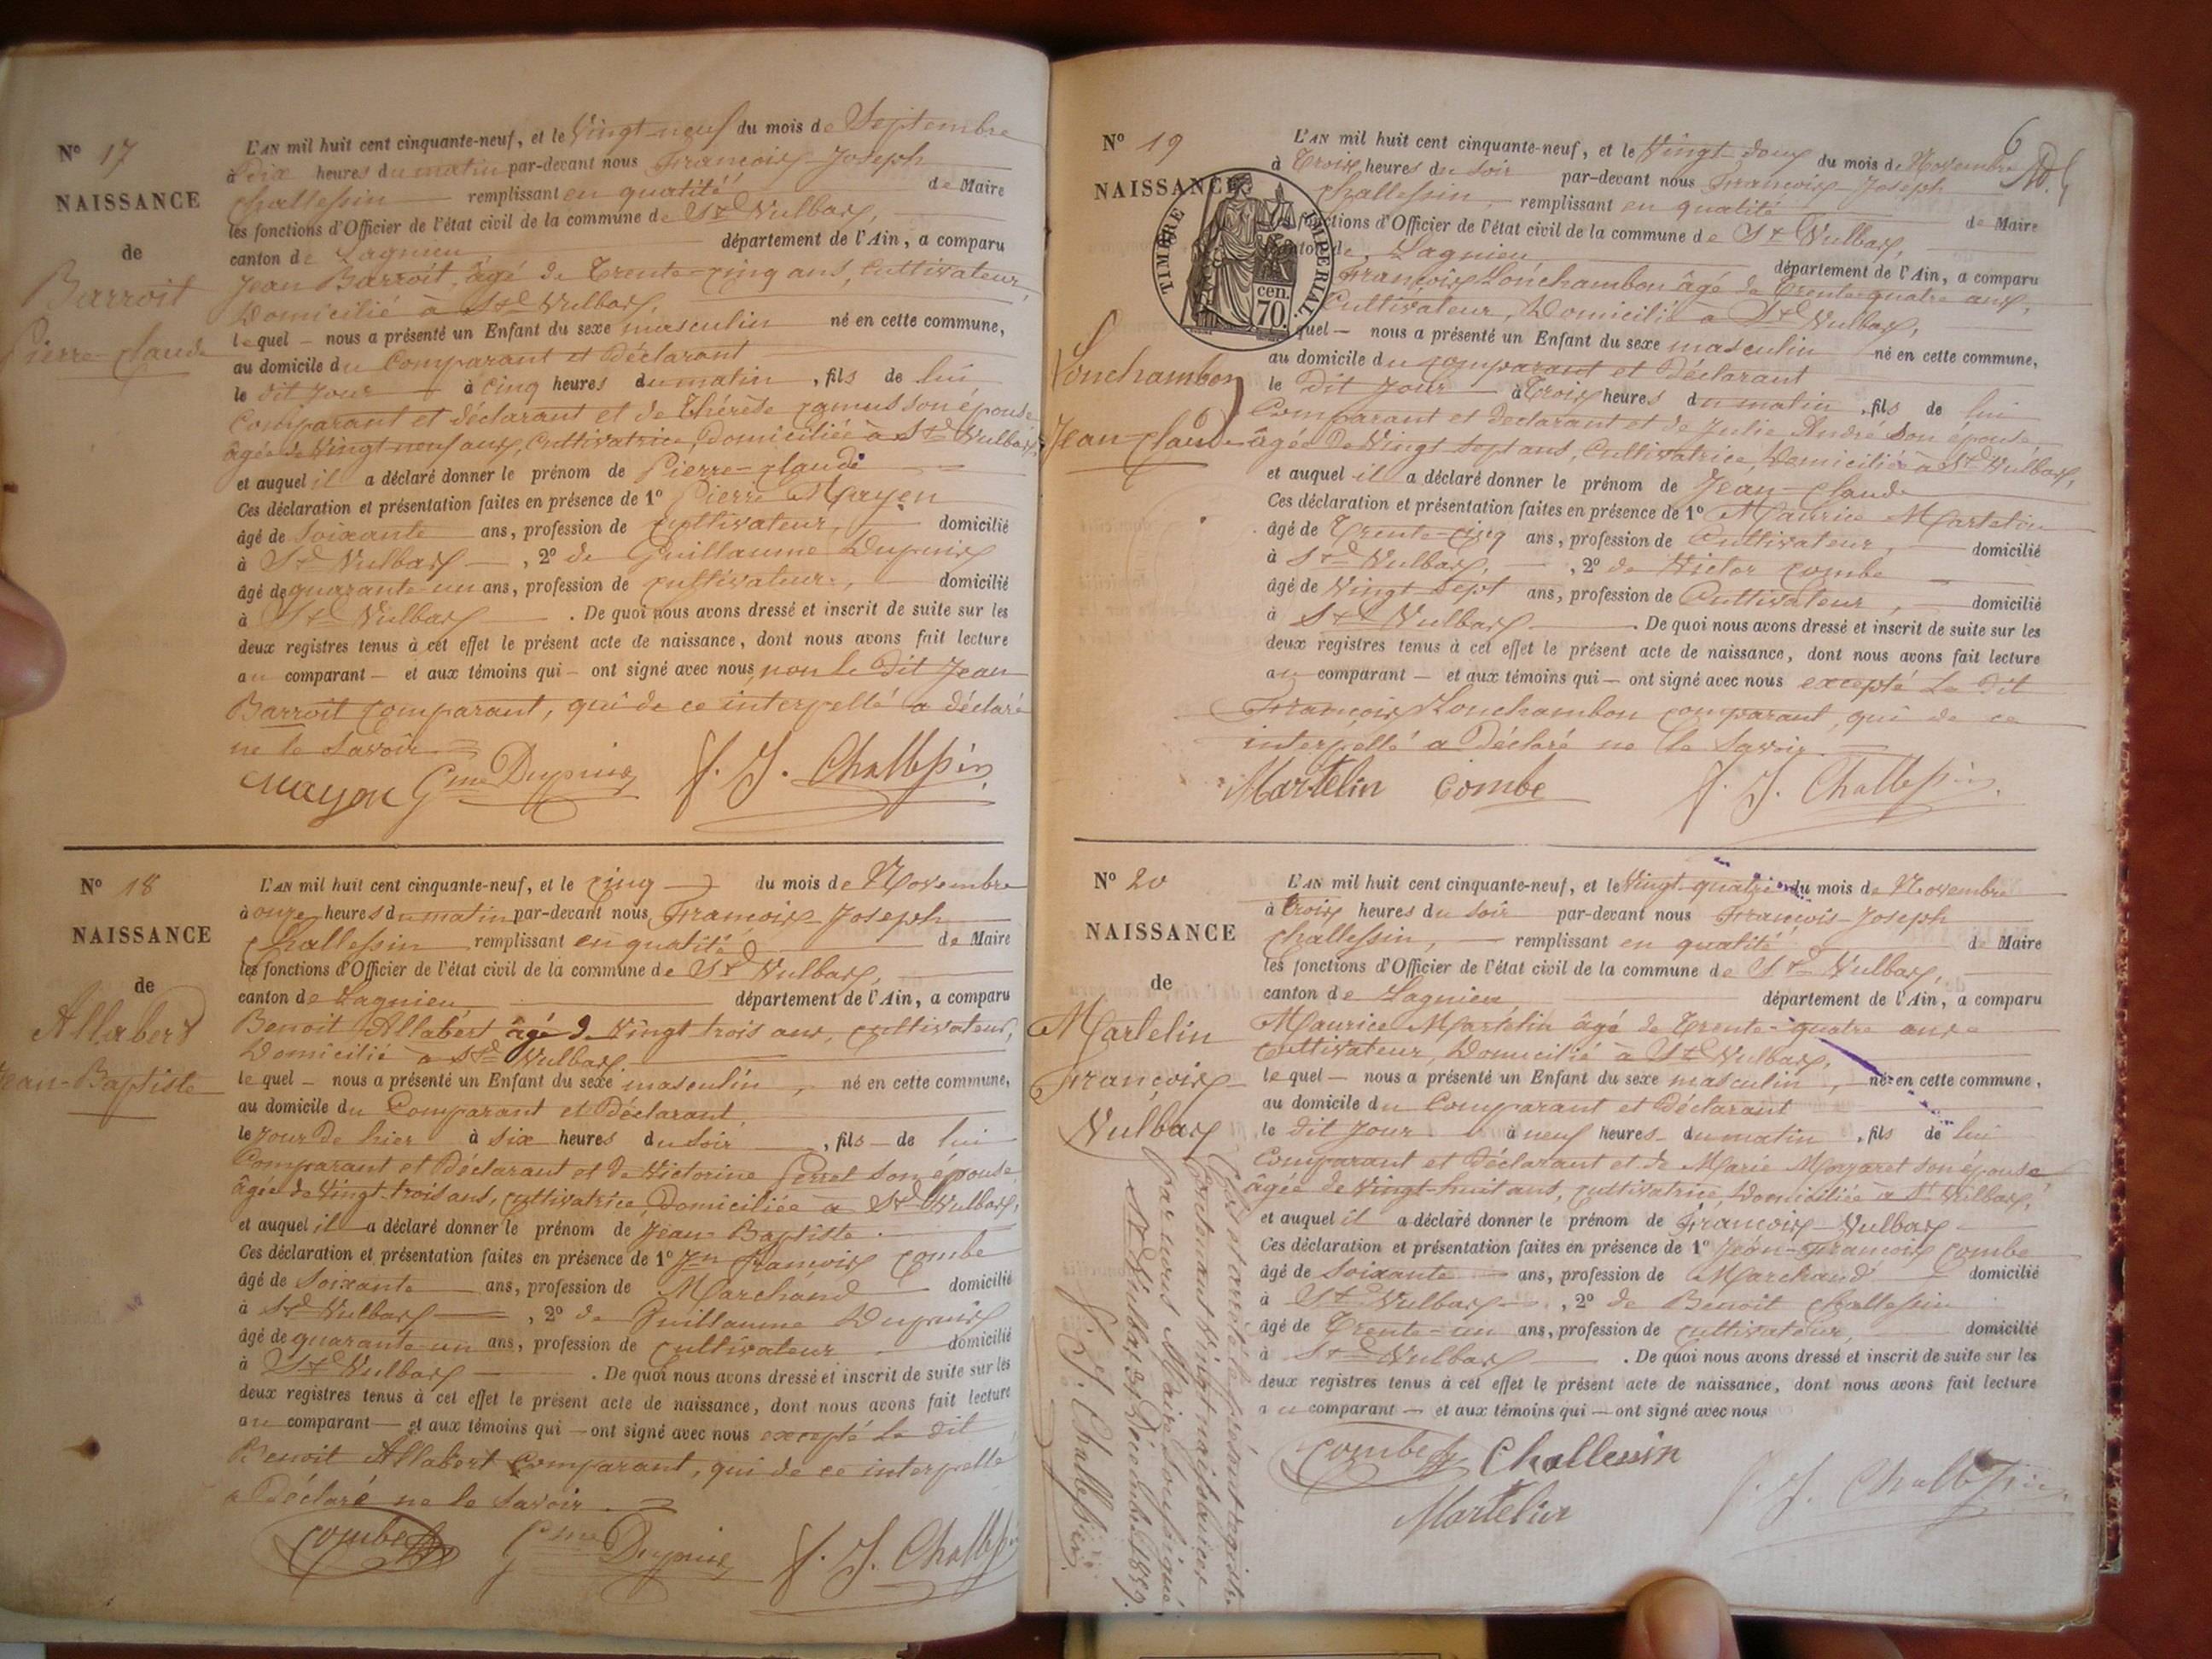 N° 17
NAISSANCE
de
Barroit
Pierre-Claude
L'AN mil huit cent cinquante-neuf, et le Vingt-neuf du mois de Septembre
à Dix heures du matin par-devant nous François-Joseph
Challessin remplissant en qualité de Maire
les fonctions d'Officier de l'état civil de la commune de St Vulbas,
canton de Lagnieu département de l'Ain, a comparu
Jean Barroit, âgé de Trente-cinq ans, Cultivateur,
Domicilié à St Vulbas,
lequel nous a présenté un Enfant du sexe masculin né en cette commune,
au domicile du Comparant et Déclarant
le dit jour à cinq heures du matin, fils de lui
Comparant et déclarant et de Thérèse son épouse
âgée de Vingt-neuf ans, Cultivatrice, Domiciliée à St Vulbas,
et auquel il a déclaré donner le prénom de Pierre-Claude
Ces déclaration et présentation faites en présence de 1° Pierre Mayen
âgé de Soixante ans, profession de Cultivateur, domicilié
à St Vulbas, 2° de Guillaume Dupuis
âgé de quarante-un ans, profession de Cultivateur, domicilié
à St Vulbas. De quoi nous avons dressé et inscrit de suite sur les
deux registres tenus à cet effet le présent acte de naissance, dont nous avons fait lecture
au comparant et aux témoins qui ont signé avec nous, non le Dit Jean
Barroit Comparant, qui de ce interpellé a déclaré
ne le Savoir
Mayen Gme Dupuis f. J. Challessin
N° 18
NAISSANCE
de
Allabert
Jean-Baptiste
L'AN mil huit cent cinquante-neuf, et le Cinq du mois de Novembre
à onze heures du matin par-devant nous François-Joseph
Challessin remplissant en qualité de Maire
les fonctions d'Officier de l'état civil de la commune de St Vulbas,
canton de Lagnieu département de l'Ain, a comparu
Benoit Allabert âgé de Vingt trois ans, Cultivateur,
Domicilié à St Vulbas
lequel nous a présenté un Enfant du sexe masculin, né en cette commune,
au domicile du Comparant et Déclarant,
le Jour de hier à six heures du Soir, fils de lui
Comparant et Déclarant et de Victorine Ferret son épouse,
âgée de Vingt-trois ans, Cultivatrice, Domiciliée à St Vulbas,
et auquel il a déclaré donner le prénom de Jean Baptiste.
Ces déclaration et présentation faites en présence de 1° Jn françois Combe
âgé de Soixante ans, profession de Marchand domicilié
à St Vulbas, 2° de Guillaume Dupuis
âgé de quarante un ans, profession de Cultivateur domicilié
à St Vulbas. De quoi nous avons dressé et inscrit de suite sur les
deux registres tenus à cet effet le présent acte de naissance, dont nous avons fait lecture
au comparant et aux témoins qui ont signé avec nous excepté le dit
Benoit Allabert Comparant, qui de ce interpellé
a Déclaré ne le Savoir.
Combe Gme Dupuis f. J. Challessin
6
N° 19
NAISSANCE
TIMBRE IMPERIAL
70. cen.
Lonchambon
Jean-Claude
L'AN mil huit cent cinquante-neuf, et le Vingt-Deux du mois de Novembre
à Trois heures du Soir par-devant nous François-Joseph
Challessin, remplissant en qualité de Maire
les fonctions d'Officier de l'état civil de la commune de St Vulbas,
canton de Lagnieu département de l'Ain, a comparu
François Lonchambon âgé de Trente-quatre ans,
Cultivateur, Domicilié à St Vulbas,
quel nous a présenté un Enfant du sexe masculin né en cette commune,
au domicile du Comparant et Déclarant
le Dit Jour à Trois heures du matin, fils de lui
Comparant et Déclarant et de Julie André Son épouse,
âgée De Vingt-Sept ans, Cultivatrice, Domiciliée à St Vulbas,
et auquel il a déclaré donner le prénom de Jean-Claude
Ces déclaration et présentation faites en présence de 1° Maurice Martelin
âgé de Trente-cinq ans, profession de Cultivateur, domicilié
à St Vulbas, 2° de Victor Combe
âgé de Vingt Sept ans, profession de Cultivateur, domicilié
à St Vulbas. De quoi nous avons dressé et inscrit de suite sur les
deux registres tenus à cet effet le présent acte de naissance, dont nous avons fait lecture
au comparant et aux témoins qui ont signé avec nous excepté le dit
François Lonchambon comparant, qui de ce
interpellé a Déclaré ne le Savoir.
Martelin Combe f. J. Challessin
N° 20
NAISSANCE
de
Martelin
François
Vulbas
L'AN mil huit cent cinquante-neuf, et le Vingt-quatre du mois de Novembre
à Trois heures du Soir par-devant nous François-Joseph
Challessin, remplissant en qualité de Maire
les fonctions d'Officier de l'état civil de la commune de St Vulbas,
canton de Lagnieu département de l'Ain, a comparu
Maurice Martelin âgé de Trente-quatre ans
Cultivateur, Domicilié à St Vulbas,
lequel nous a présenté un Enfant du sexe masculin, né en cette commune,
au domicile du Comparant et Déclarant
le dit Jour à neuf heures du matin, fils de lui
Comparant et Déclarant et de Marie son épouse,
âgée de Vingt-huit ans, Cultivatrice, Domiciliée à St Vulbas,
et auquel il a déclaré donner le prénom de François-Vulbas
Ces déclaration et présentation faites en présence de 1° Jean-François Combe
âgé de Soixante ans, profession de Marchand domicilié
à St Vulbas, 2° de Benoit Challessin
âgé de Trente-un ans, profession de Cultivateur, domicilié
à St Vulbas. De quoi nous avons dressé et inscrit de suite sur les
deux registres tenus à cet effet le présent acte de naissance, dont nous avons fait lecture
au comparant et aux témoins qui ont signé avec nous
Combe Challessin
Martelin f. J. Challessin
Clos et arrêté le présent registre
Contenant Vingt naissances
par nous Maire Soussigné
St Vulbas 31 Décembre 1859.
f. J. Challessin.